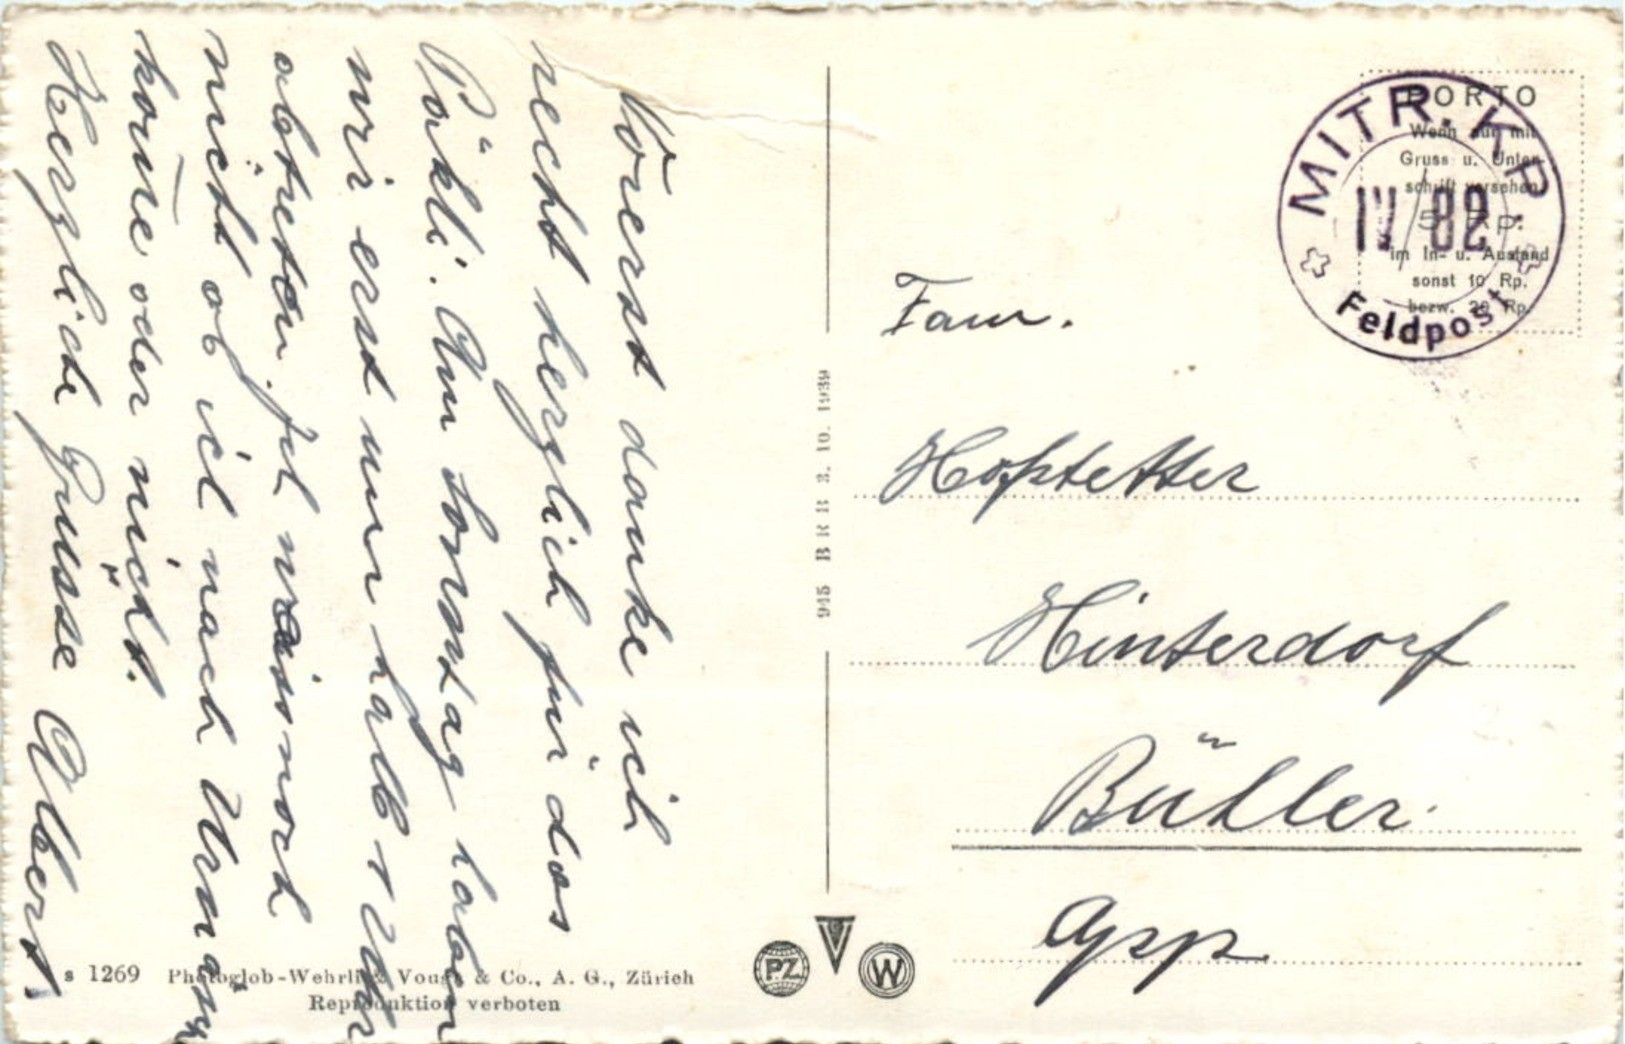 Vorerst danke ich
recht herzlich für das
Päkli. Am Sonntag haben
wir erst um halb 7 Uhr
abtreten. Ich weiss noch
nicht ob ich nach Urnäsch
kome oder nicht.
Herzliche Grüsse Albert
Fam.
Hofstetter
Hinterdorf
Bühler.
App.
MITR. KP.
IV 82
Feldpost
PORTO
Wenn nur mit
Gruss u. Unter-
schrift versehen
5 Rp.
im In- u. Ausland
sonst 10 Rp.
bezw. 20 Rp.
945 BRB 3. 10. 1939
s 1269 Photoglob-Wehrli & Vouga & Co., A. G., Zürich
Reproduktion verboten
PZ
V
W